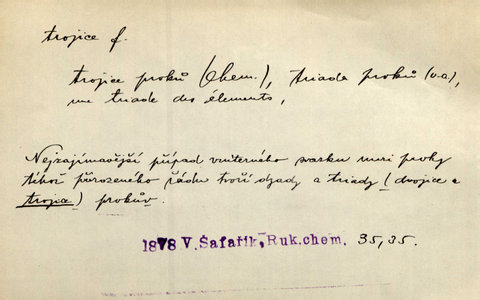 trojice f.
trojice prvků (Chem.), triada prvků (v.a.),
une triade des éléments,
Nejzajímavější případ vniterného svazku mezi prvky
téhož přirozeného řádu tvoří dyady a triady (dvojice a
trojice) prvkův.
1878 V. Šafařík, Ruk.chem. 35,35.